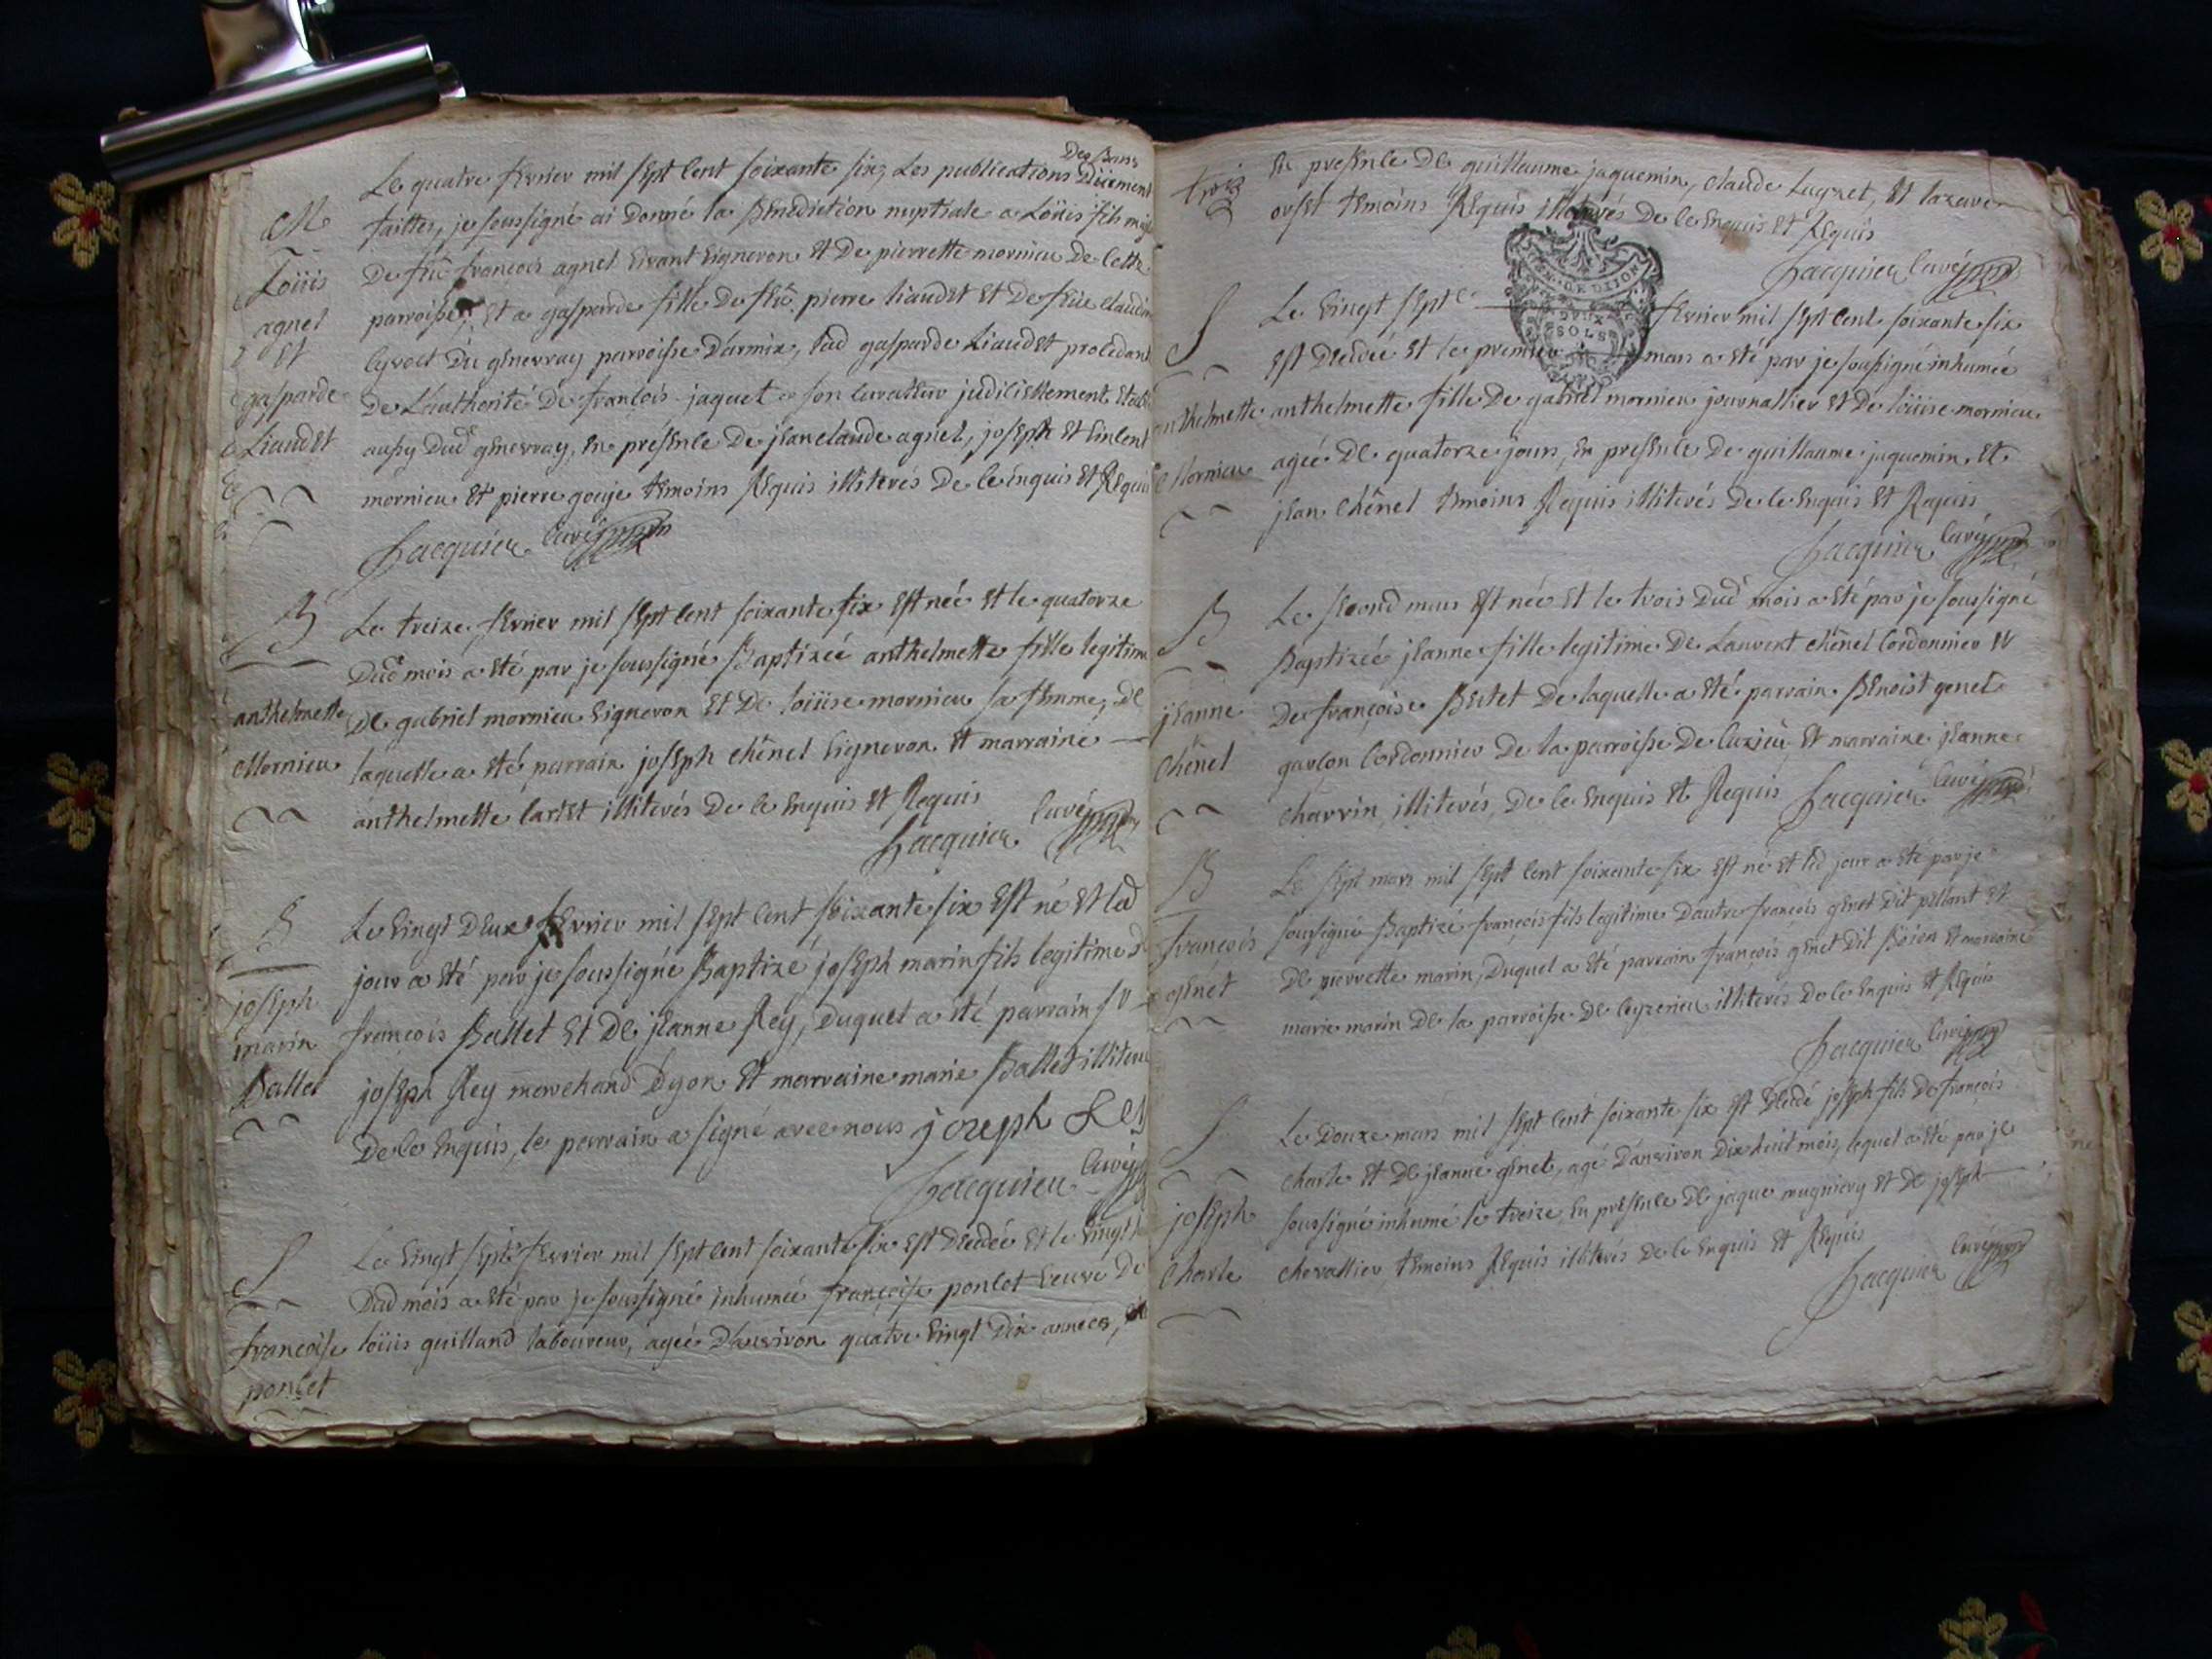 Des Bans
Le quatre fevrier mil sept cent soixante six, les publications düement
M
faittes, je soussigné ai donné la Benediction nuptiale a Loüis fils
Loüis
de feû francois agnel vivant vigneron et de pierrette mornieu de cette
agnel
parroisse, et a gasparde fille de feû pierre liaudet et de feüe claudin
et
du genevray parroisse d'armix, lad gasparde Liaudet procedant
gasparde
de L'authorité de françois jaquet son curateur judiciellement
Liaudet
aussy dud genevray, en présence de jeanclaude agnel, joseph et vincent
mornieu et pierre gouje temoins requis illiterés de ce enquis et requis
Jacquier curé
B
Le treize fevrier mil sept cent soixante six est née et le quatorze
dud mois a eté par je soussigné Baptizée anthelmette fille legitime
anthelmette
de gabriel mornieu vigneron et de loüise mornieu sa femme, de
Mornieu
laquelle a eté parrain joseph chênel vigneron et marraine
anthelmette illiterés de ce enquis et requis
Jacquier curé
B
Le vingt deux fevrier mil sept cent soixante six est né et led
jour a eté par je soussigné Baptizé joseph marin fils legitime d
joseph
marin
françois Ballet et de jeanne Rey, duquel a été parrain sr
Ballet
joseph Rey marchand dyon et marraine marie Ballet illiteré
de ce enquis, le parrain a signé avec nous joseph Rey
Jacquier curé
S
Le vingt sept fevrier mil sept cent soixante six est decedée et le vingt
dud mois a eté par je soussigné inhumée françoise poncet veuve de
françoise
loüis guilland laboureur, agée d'anviron quatre vingt dix années,
poncet
trois
en presence de guillaume jaquemin, claude Lugnet, et lazare
temoins requis illiterés de ce enquis et requis
Jacquier curé
GEN DE DIJON
DEUX
SOLS
S
Le vingt sept fevrier mil sept cent soixante six
est decedée et le premier mars a eté par je soussigné inhumée
anthelmette
anthelmette fille de gabriel mornieu journallier et de loüise mornieu
Mornieu
agée de quatorze jours, en presence de guillaume jaquemin, et
jean chênel temoins requis illiterés de ce enquis et requis
Jacquier curé
B
Le second mars est née et le trois dud mois a eté par je soussigné
Baptizée jeanne fille legitime de Laurent chênel cordonnier et
jeanne
de françoise de laquelle a eté parrain Benoist genet
chênel
garçon cordonnier de la parroisse de cuzieu et marraine jeanne
charvin, illiterés, de ce enquis et requis Jacquier curé
B
Le sept mars mil sept cent soixante six est né et led jour a eté par je
françois
soussigné Baptizé françois fils legitime d'autre françois genet dit et
genet
de pierrette marin, duquel a eté parrain françois genet dit et marraine
marie marin de la parroisse de ceyzerieu illiterés de ce enquis et requis
Jacquier curé
S
Le douze mars mil sept cent soixante six est decedé joseph fils de françois
charle et de jeanne genet, agé d'anviron dix huit mois, lequel a eté par je
joseph
soussigné inhumé le treize, en presence de jaque et de joseph
charle
chevallier temoins requis illiterés de ce enquis et requis
Jacquier curé